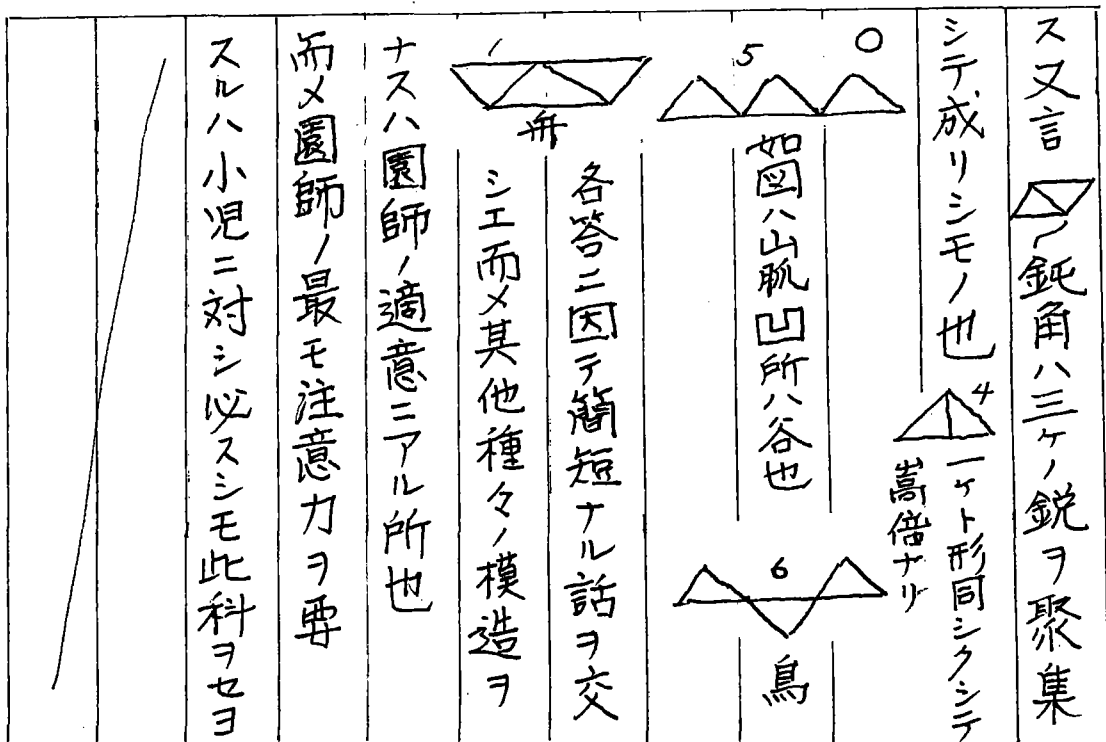 ス又言ノ鈍角ハ三ケノ鋭ヲ聚集
シテ成リシモノ也
4
一ケト形同シクシテ
嵩倍ナリ
0
5
如図ハ山脈凹所ハ谷也
6
鳥
各答ニ因テ簡短ナル話ヲ交
舟
シエ而〆其他種々ノ模造ヲ
ナスハ園師ノ適意ニアル所也
而〆園師ノ最モ注意力ヲ要
スルハ小児ニ対シ必スシモ此科ヲセヨ